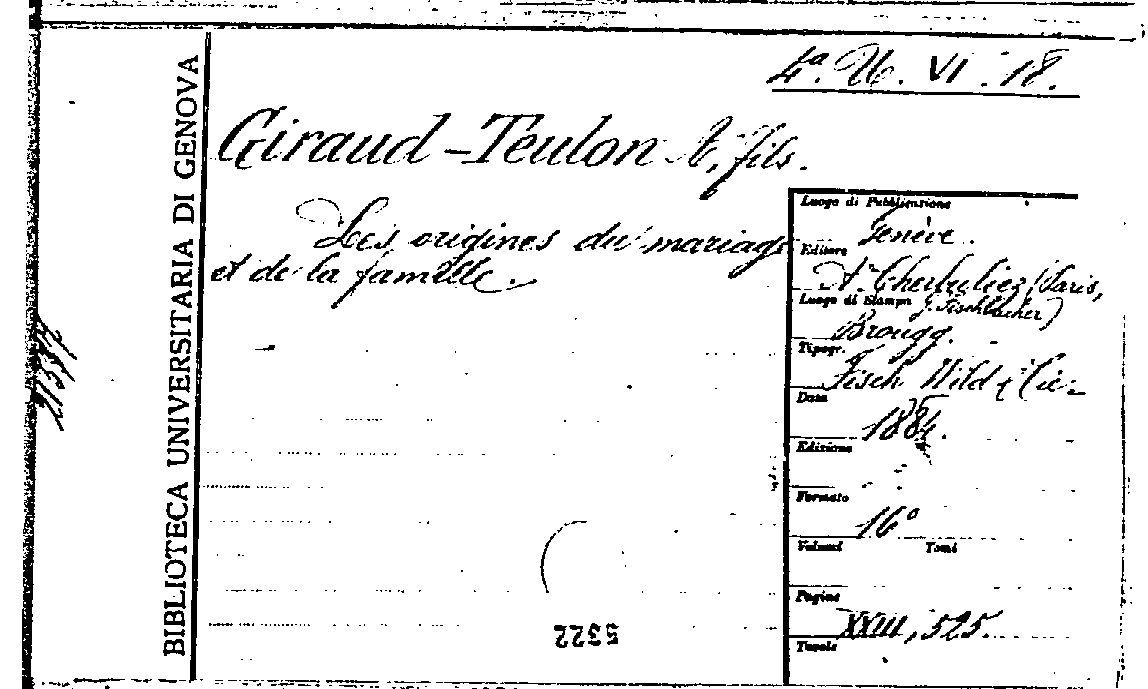 4ª. U. VI. 18.
BIBLIOTECA UNIVERSITARIA DI GENOVA
Giraud-Teulon A, fils.
Les origines du mariage
et de la famille.
Luogo di Pubblicazione
Genève.
Editore
A. Cherbuliez (Paris,
J. Fischbacher)
Luogo di Stampa
Brougg.
Tipogr.
Fisch Wild & Cie
Data
1884.
Edizione
Formato
16°
Volumi Tomi
Pagine
XXIII, 525.
Tavole
5322